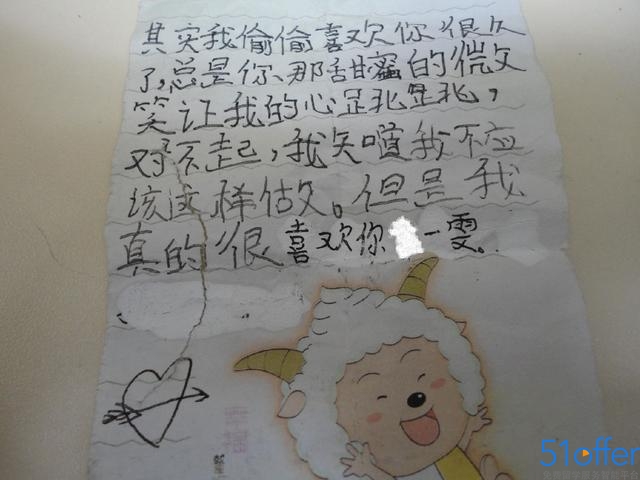 其实我偷偷喜欢你很久
了,总是你那甜蜜的微
笑让我的心是非是非,
对不起,我知道我不应
该这样做。但是我
真的很喜欢你 一雯。
51offer